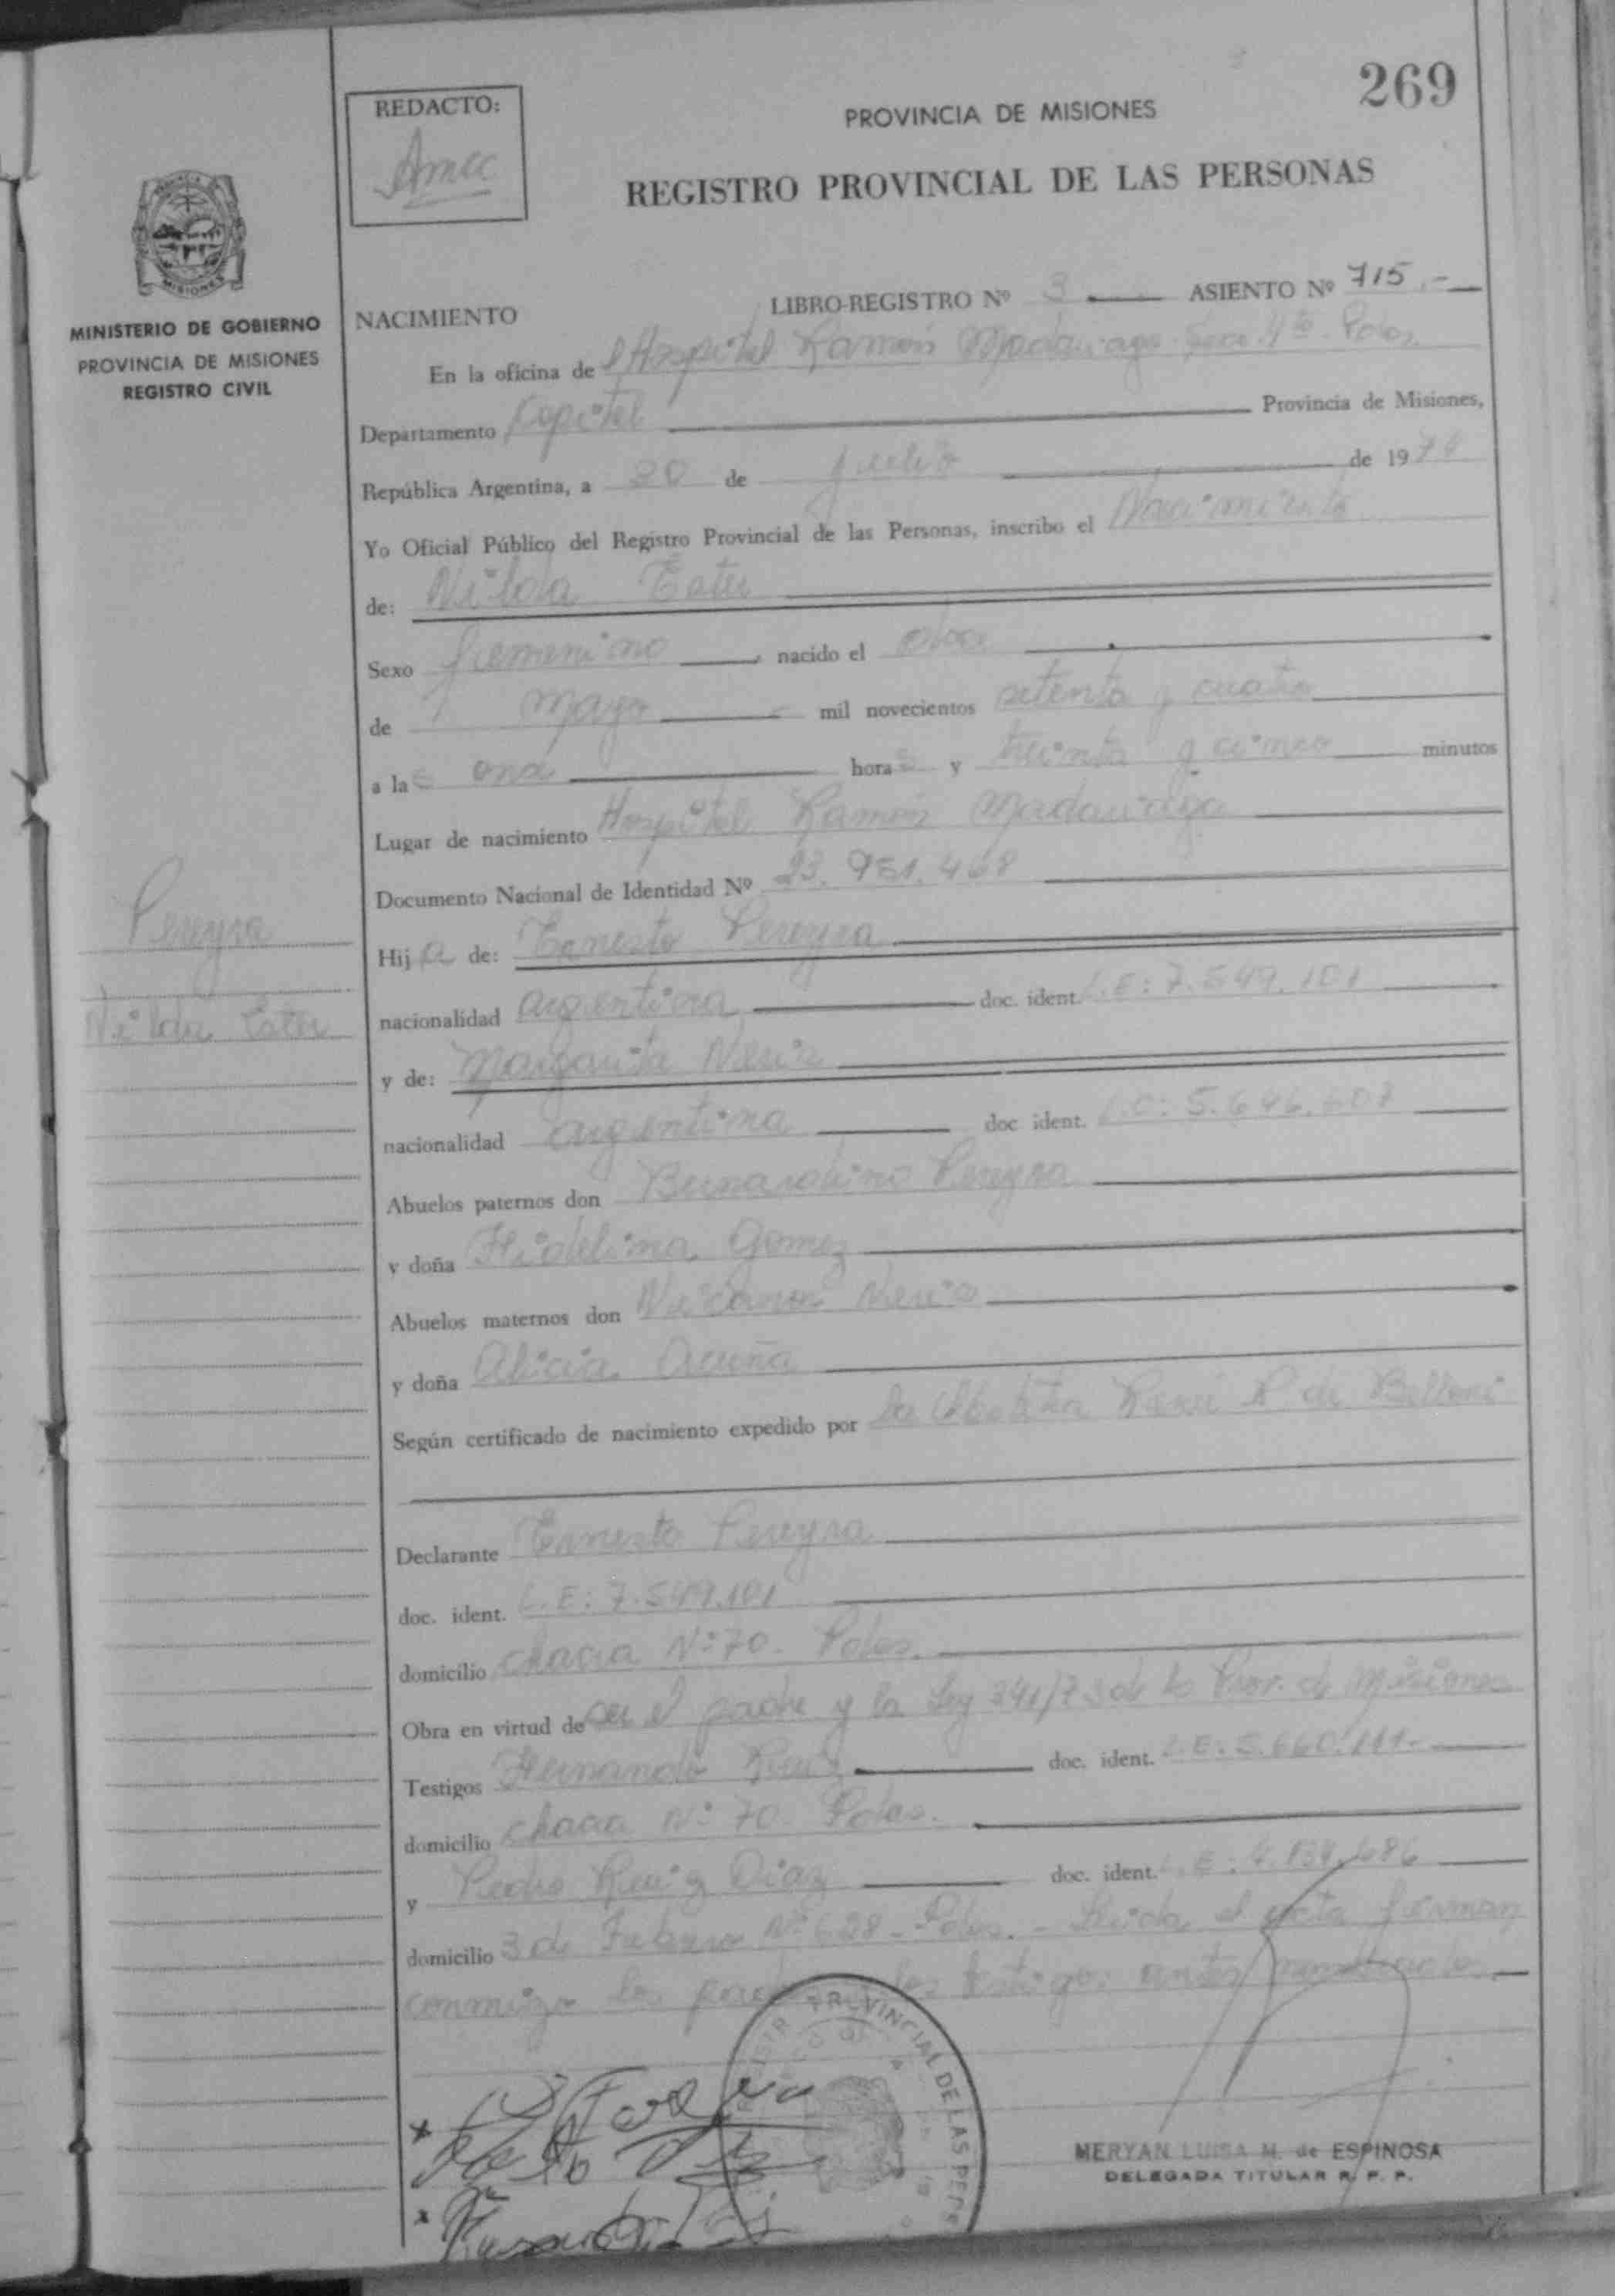 269
REDACTO:
Amcc
PROVINCIA DE MISIONES
REGISTRO PROVINCIAL DE LAS PERSONAS
MISIONES
MINISTERIO DE GOBIERNO
PROVINCIA DE MISIONES
REGISTRO CIVIL
NACIMIENTO LIBRO-REGISTRO Nº 3 ASIENTO Nº 715.-
En la oficina de Hospital Ramón Madariaga Secc. 4ta Pdas.
Departamento Capital Provincia de Misiones,
República Argentina, a 30 de julio de 1974
Yo Oficial Público del Registro Provincial de las Personas, inscribo el Nacimiento
de: Nilda Ester
Sexo femenino nacido el doce
de Mayo mil novecientos setenta y cuatro
a las una horas y treinta y cinco minutos
Lugar de nacimiento Hospital Ramón Madariaga
Documento Nacional de Identidad Nº 23.951.468
Pereyra
Hija de: Ernesto Pereyra
nacionalidad argentina doc. ident. L.E: 7.549.101
Nilda Ester
y de: Margarita Neris
nacionalidad argentina doc ident. L.C: 5.646.607
Abuelos paternos don Bernardino Pereyra
y doña Fidelina Gomez
Abuelos maternos don Nicanor
y doña Alicia Acuña
Según certificado de nacimiento expedido por la Obstetra de Belloni
Declarante Ernesto Pereyra
doc. ident. L.E: 7.549.101
domicilio chacra Nº 70. Pdas.
Obra en virtud de ser el padre y la Ley 341/73 de la Prov. de Misiones
Testigos Fernando Ruiz doc. ident. L.E: 5.660.111.-
domicilio chacra Nº 70 Pdas.
y Pedro Ruiz Diaz doc. ident. L.E: 4.134.686
domicilio 3 de Febrero Nº 628 - Pdas. - Leida el acta firman
conmigo los testigos antes
PROVINCIAL DE LAS PERS
MERYAN LUISA M. de ESPINOSA
DELEGADA TITULAR R. P. P.